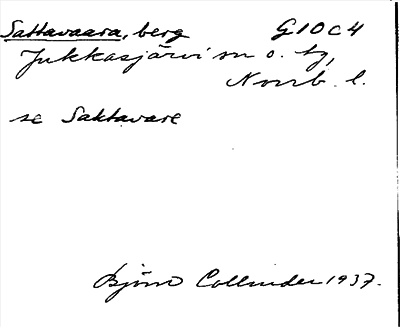 Sattavaara, berg G10C4
Jukkasjärvi sn o. tg,
Norrb. l.
se Saktavare
Björn Collinder 1937.